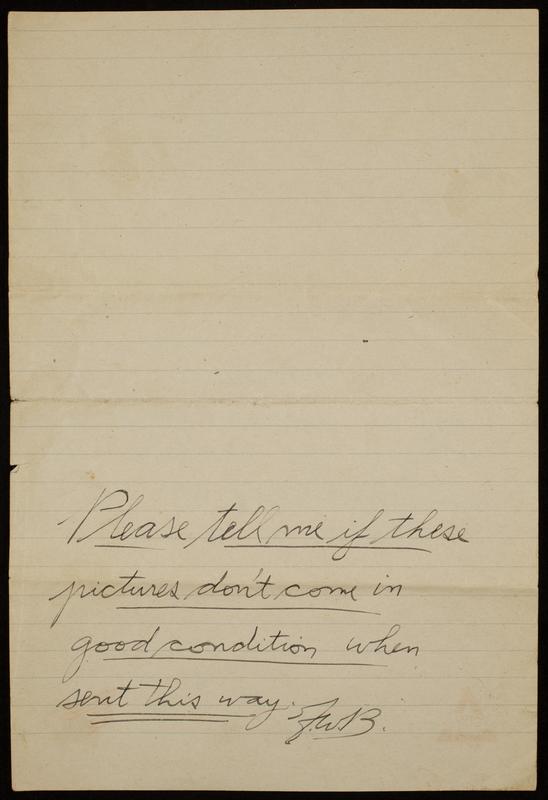 Please tell me if these
pictures don't come in
good condition when
sent this way. F.W.B.